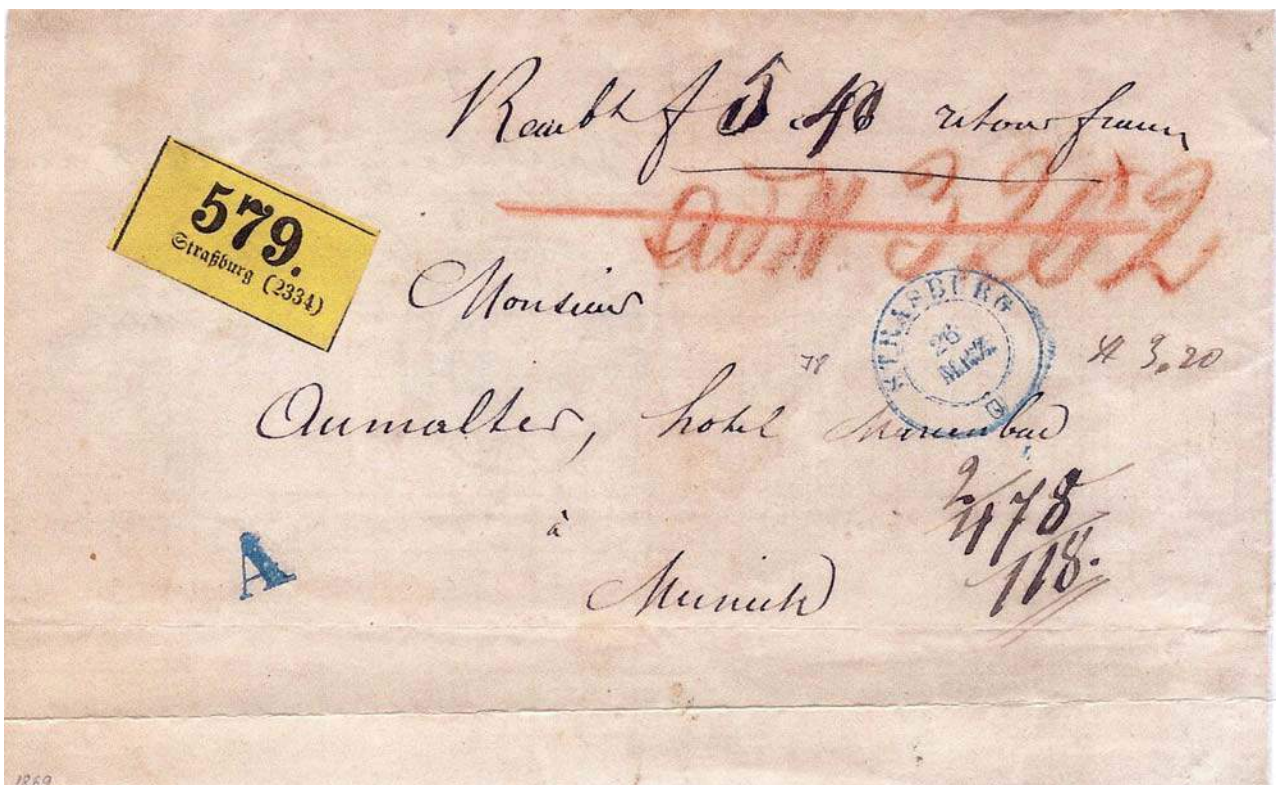 Rembt f 5.40 retour franco
579.
Straßburg (2334)
3262
Monsieur
STRASBURG
26
MRZ
78
3,20
Aumalter, hotel Marienbad
2/478
118.
à
A
Munich
1869